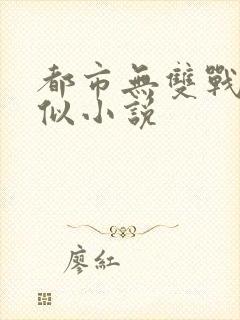 都市無雙戰
似小說
廖紅